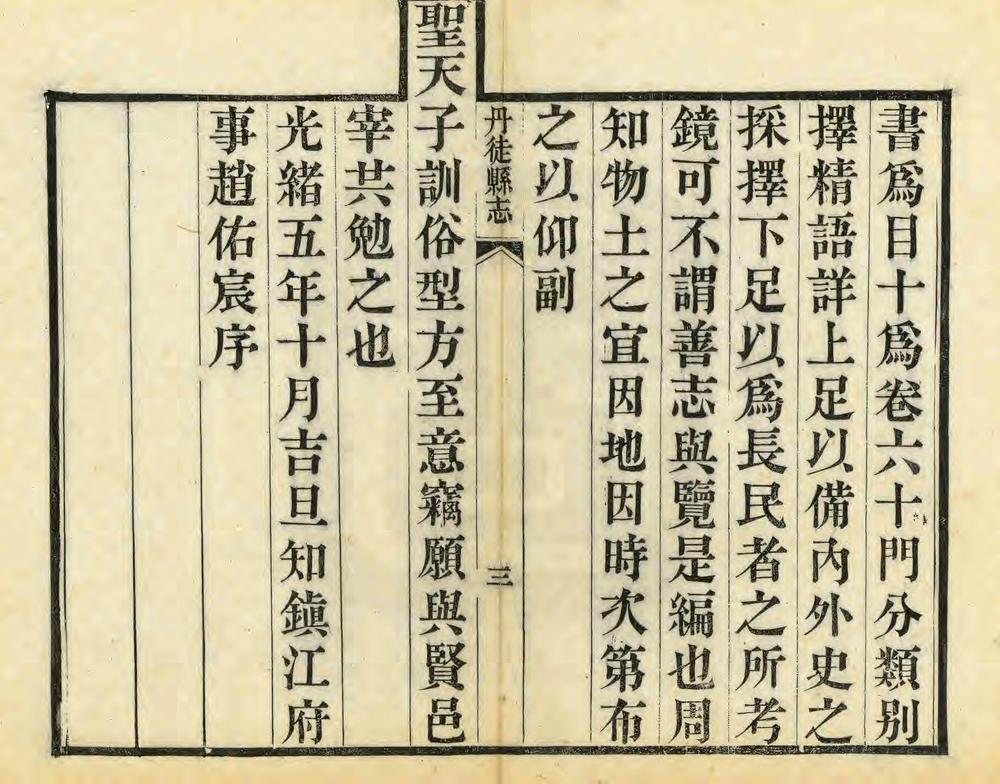 書爲目十爲卷六十門分類别
擇精語詳上足以備內外史之
採擇下足以爲長民者之所考
鏡可不謂善志與覽是編也周
知物土之宜因地因時次第布
之以仰副
丹徒縣志
三
聖天子訓俗型方至意竊願與賢邑
宰共勉之也
光緒五年十月吉旦知鎮江府
事趙佑宸序